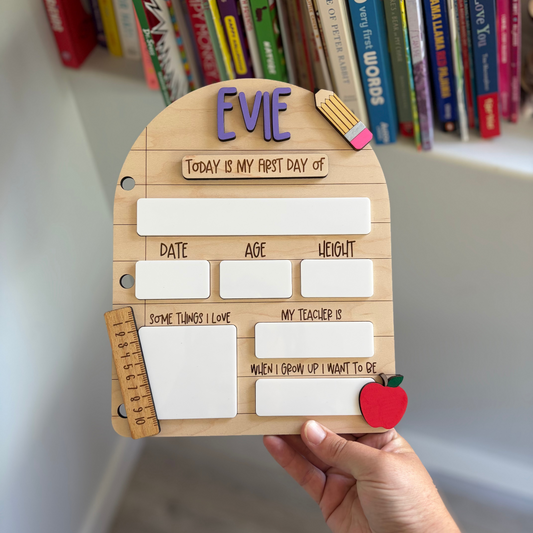 HAPPY
PETER RABBIT
very first
WORDS
LLAMA LLAMA
RED PAJAMA
Love You
EVIE
TODAY IS MY FIRST DAY OF
DATE AGE HEIGHT
SOME THINGS I LOVE MY TEACHER IS
WHEN I GROW UP I WANT TO BE